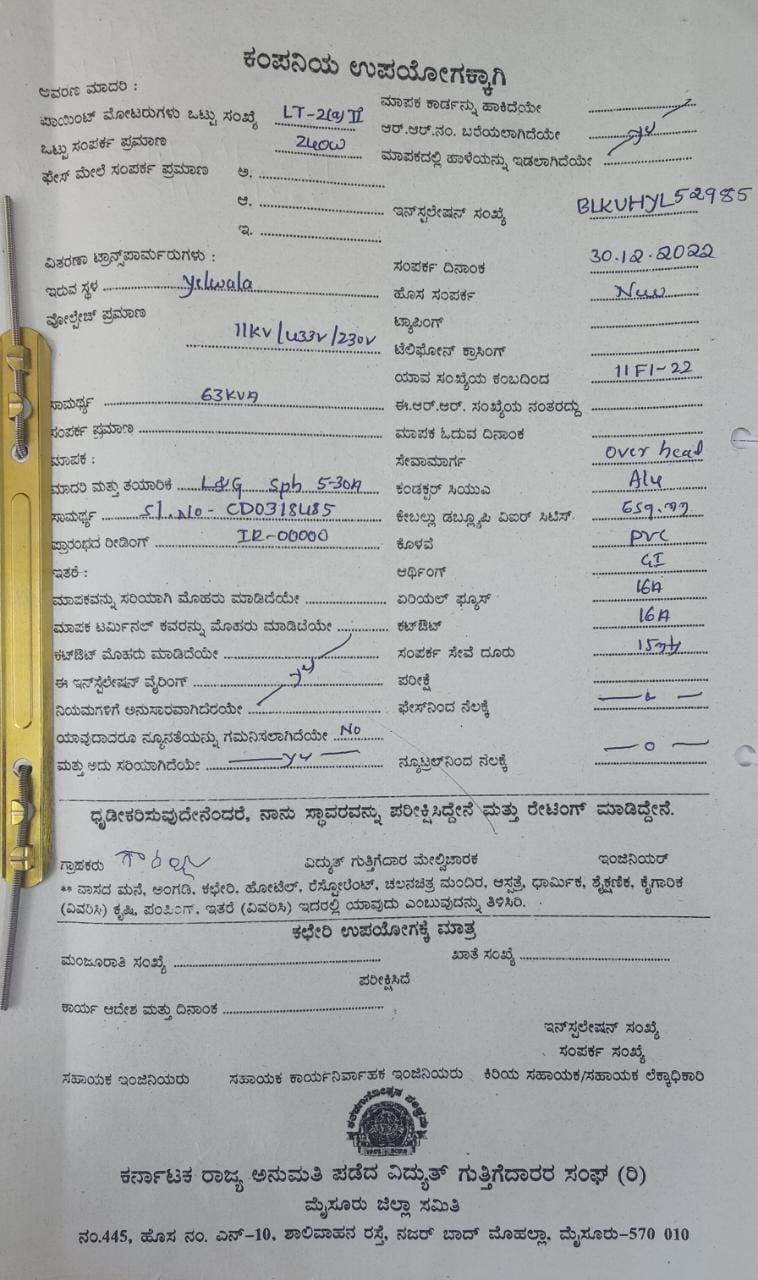 ಕಂಪನಿಯ ಉಪಯೋಗಕ್ಕಾಗಿ
ಅವರಣ ಮಾದರಿ :
ಪಾಯಿಂಟ್ ಮೋಟರುಗಳು ಒಟ್ಟು ಸಂಖ್ಯೆ LT-2(a) II
ಒಟ್ಟು ಸಂಪರ್ಕ ಪ್ರಮಾಣ 240W
ಫೇಸ್ ಮೇಲೆ ಸಂಪರ್ಕ ಪ್ರಮಾಣ ಅ.
ಆ.
ಇ.
ಮಾಪಕ ಕಾರ್ಡನ್ನು ಹಾಕಿದೆಯೇ
ಆರ್.ಆರ್.ನಂ. ಬರೆಯಲಾಗಿದೆಯೇ
ಮಾಪಕದಲ್ಲಿ ಹಾಳೆಯನ್ನು ಇಡಲಾಗಿದೆಯೇ
ಇನ್‌ಸ್ಟಲೇಷನ್ ಸಂಖ್ಯೆ BLKVHYL52985
ವಿತರಣಾ ಟ್ರಾನ್ಸ್‌ಪಾರ್ಮರುಗಳು :
ಇರುವ ಸ್ಥಳ Yelwala
ವೋಲ್ಟೇಜ್ ಪ್ರಮಾಣ
11KV/433V/230V
ಸಾಮರ್ಥ್ಯ 63KVA
ಸಂಪರ್ಕ ಪ್ರಮಾಣ
ಮಾಪಕ :
ಮಾದರಿ ಮತ್ತು ತಯಾರಿಕೆ L&G Sph 5-30A
ಸಾಮರ್ಥ್ಯ Sl.No- CD0318485
ಪ್ರಾರಂಭದ ರೀಡಿಂಗ್ IR-00000
ಇತರೆ :
ಮಾಪಕವನ್ನು ಸರಿಯಾಗಿ ಮೊಹರು ಮಾಡಿದೆಯೇ
ಮಾಪಕ ಟರ್ಮಿನಲ್ ಕವರನ್ನು ಮೊಹರು ಮಾಡಿದೆಯೇ
ಕಟ್‌ಔಟ್ ಮೊಹರು ಮಾಡಿದೆಯೇ
ಈ ಇನ್‌ಸ್ಟಲೇಷನ್ ವೈರಿಂಗ್
ನಿಯಮಗಳಿಗೆ ಅನುಸಾರವಾಗಿದೆರೆಯೇ
ಯಾವುದಾದರೂ ನ್ಯೂನತೆಯನ್ನು ಗಮನಿಸಲಾಗಿದೆಯೇ No
ಮತ್ತು ಅದು ಸರಿಯಾಗಿದೆಯೇ
ಸಂಪರ್ಕ ದಿನಾಂಕ 30.12.2022
ಹೊಸ ಸಂಪರ್ಕ New
ಟ್ಯಾಪಿಂಗ್
ಟೆಲಿಫೋನ್ ಕ್ರಾಸಿಂಗ್
ಯಾವ ಸಂಖ್ಯೆಯ ಕಂಬದಿಂದ 11F1-22
ಈ.ಆರ್.ಆರ್. ಸಂಖ್ಯೆಯ ನಂತರದ್ದು
ಮಾಪಕ ಓದುವ ದಿನಾಂಕ
ಸೇವಾಮಾರ್ಗ Over head
ಕಂಡಕ್ಟರ್ ಸಿಯುಎ Alu
ಕೇಬಲ್ಲು ಡಬ್ಲ್ಯೂಪಿ ವಿಐರ್ ಸಿಟಿಸ್ 6sq.mm
ಕೊಳವೆ PVC
ಆರ್ಥಿಂಗ್ GI
ಏರಿಯಲ್ ಫ್ಯೂಸ್ 16A
ಕಟ್‌ಔಟ್ 16A
ಸಂಪರ್ಕ ಸೇವೆ ದೂರು
ಪರೀಕ್ಷೆ
ಫೇಸ್‌ನಿಂದ ನೆಲಕ್ಕೆ
ನ್ಯೂಟ್ರಲ್‌ನಿಂದ ನೆಲಕ್ಕೆ — 0 —
ಧೃಡೀಕರಿಸುವುದೇನೆಂದರೆ, ನಾನು ಸ್ಥಾವರವನ್ನು ಪರೀಕ್ಷಿಸಿದ್ದೇನೆ ಮತ್ತು ರೇಟಿಂಗ್ ಮಾಡಿದ್ದೇನೆ.
ಗ್ರಾಹಕರು ವಿದ್ಯುತ್ ಗುತ್ತಿಗೆದಾರ ಮೇಲ್ವಿಚಾರಕ ಇಂಜಿನಿಯರ್
** ವಾಸದ ಮನೆ, ಅಂಗಡಿ, ಕಛೇರಿ, ಹೋಟೆಲ್, ರೆಸ್ಟೋರೆಂಟ್, ಚಲನಚಿತ್ರ ಮಂದಿರ, ಆಸ್ಪತ್ರೆ, ಧಾರ್ಮಿಕ, ಶೈಕ್ಷಣಿಕ, ಕೈಗಾರಿಕೆ
(ವಿವರಿಸಿ) ಕೃಷಿ, ಪಂಪಿಂಗ್, ಇತರೆ (ವಿವರಿಸಿ) ಇದರಲ್ಲಿ ಯಾವುದು ಎಂಬುವುದನ್ನು ತಿಳಿಸಿರಿ.
ಕಛೇರಿ ಉಪಯೋಗಕ್ಕೆ ಮಾತ್ರ
ಮಂಜೂರಾತಿ ಸಂಖ್ಯೆ ಖಾತೆ ಸಂಖ್ಯೆ
ಪರೀಕ್ಷಿಸಿದೆ
ಕಾರ್ಯ ಆದೇಶ ಮತ್ತು ದಿನಾಂಕ
ಇನ್‌ಸ್ಟಲೇಷನ್ ಸಂಖ್ಯೆ
ಸಂಪರ್ಕ ಸಂಖ್ಯೆ
ಸಹಾಯಕ ಇಂಜಿನಿಯರು ಸಹಾಯಕ ಕಾರ್ಯನಿರ್ವಾಹಕ ಇಂಜಿನಿಯರು ಕಿರಿಯ ಸಹಾಯಕ/ಸಹಾಯಕ ಲೆಕ್ಕಾಧಿಕಾರಿ
ಕರ್ನಾಟಕ ರಾಜ್ಯ ಅನುಮತಿ ಪಡೆದ ವಿದ್ಯುತ್ ಗುತ್ತಿಗೆದಾರರ ಸಂಘ (ರಿ)
ಮೈಸೂರು ಜಿಲ್ಲಾ ಸಮಿತಿ
ನಂ.445, ಹೊಸ ನಂ. ಎನ್-10, ಶಾಲಿವಾಹನ ರಸ್ತೆ, ನಜರ್ ಬಾದ್ ಮೊಹಲ್ಲಾ, ಮೈಸೂರು-570 010